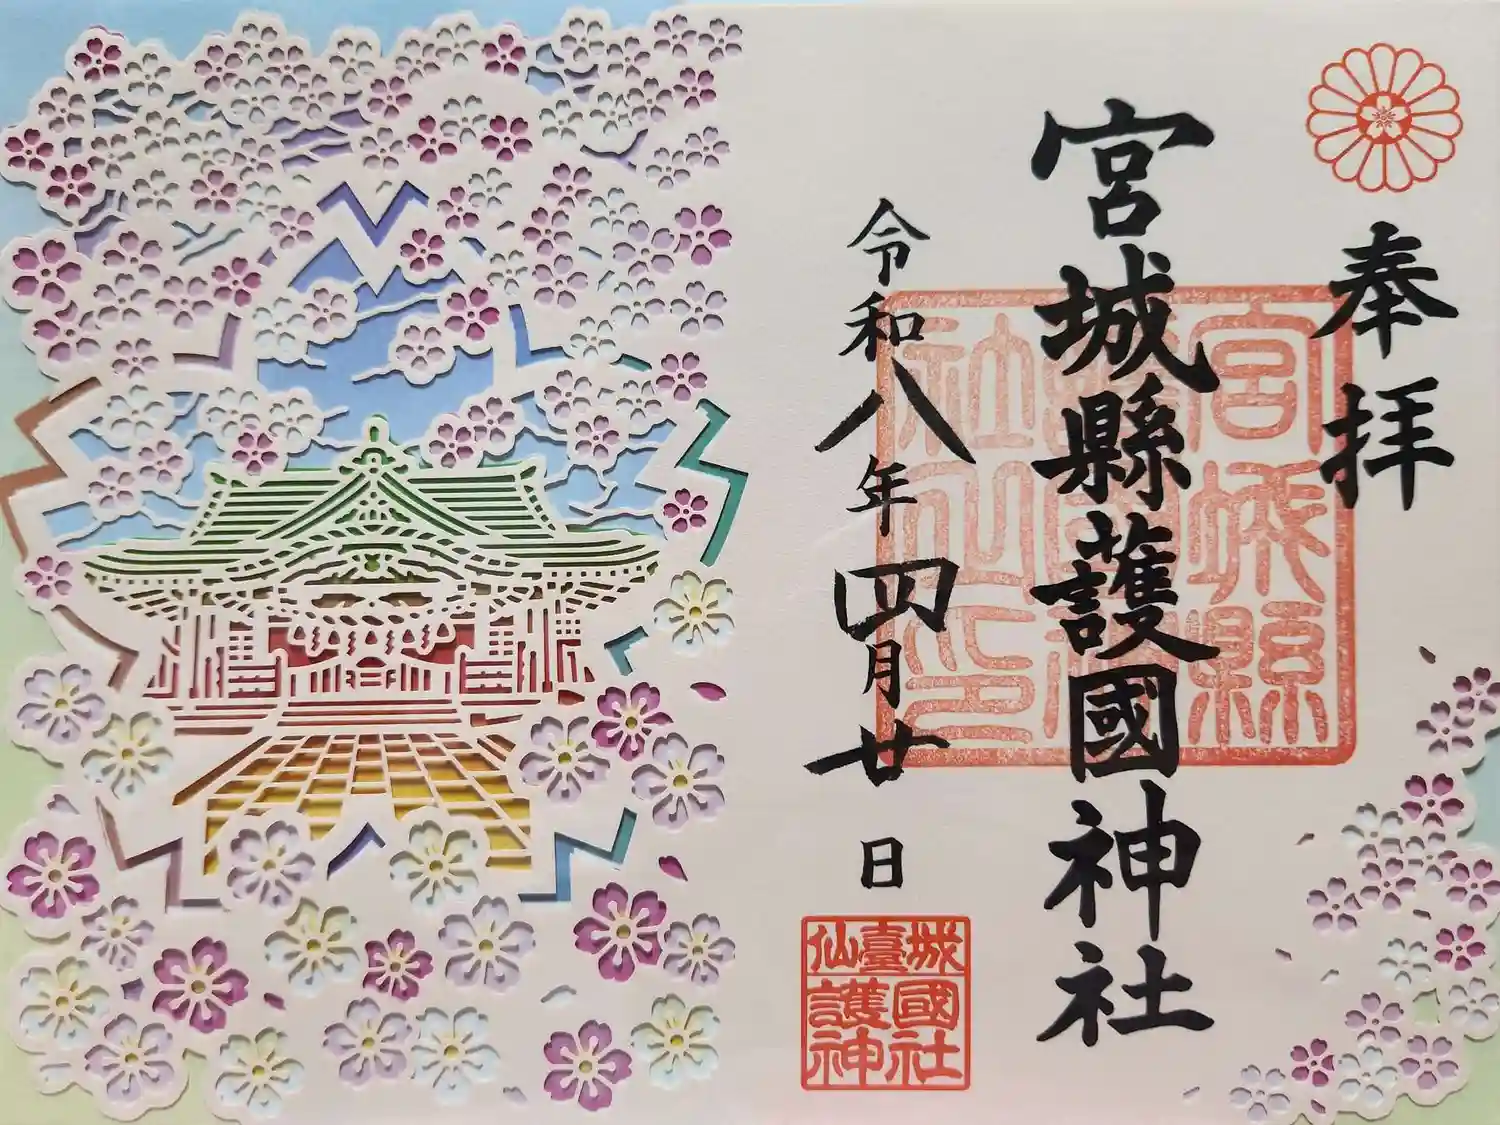 奉拝
宮城縣護國神社
令和八年四月廿日
宮城縣
社
印
仙臺城
護國
神社